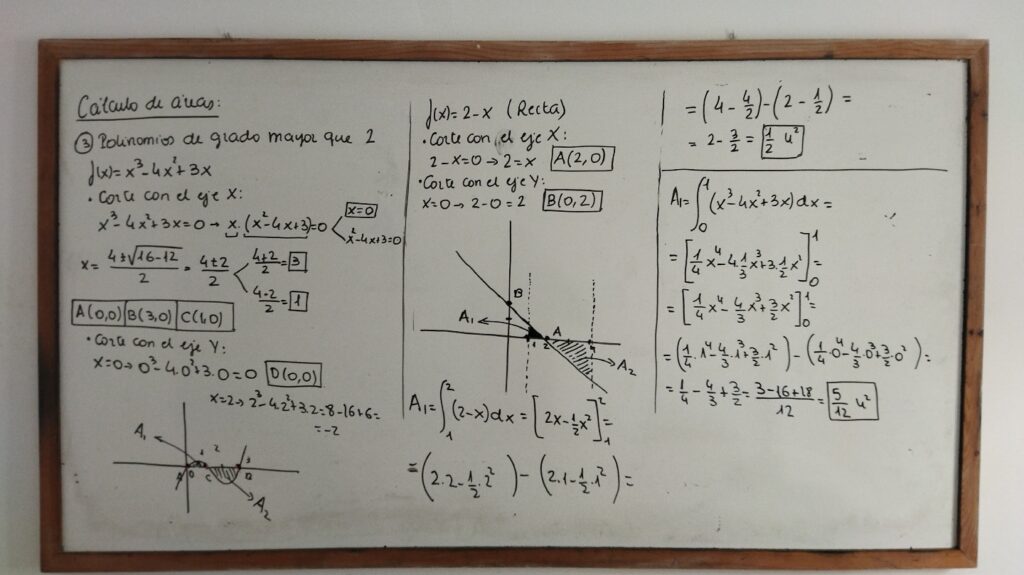 Cálculo de áreas:
③ Polinomios de grado mayor que 2
f(x)=x³-4x²+3x
· Corte con el eje X:
x³-4x²+3x=0 → x·(x²-4x+3)=0 < x=0
x²-4x+3=0
x= (4±√(16-12))/2 = (4±2)/2 < (4+2)/2=3
(4-2)/2=1
A(0,0) B(3,0) C(1,0)
· Corte con el eje Y:
x=0→0³-4.0²+3.0=0 D(0,0)
x=2→2³-4.2²+3.2=8-16+6=
=-2
A₁ 1 2 3
A D C B
A₂
f(x)=2-x (Recta)
· Corte con el eje X:
2-x=0→2=x A(2,0)
· Corte con el eje Y:
x=0→2-0=2 B(0,2)
B
A₁ A
1 2
A₂
A₁=∫₁²(2-x)dx=[2x-½x²]₁²=
=(2·2-½·2²)-(2·1-½·1²)=
=(4-4/2)-(2-½)=
=2-3/2=½ u²
A₁=∫₀¹(x³-4x²+3x)dx=
=[¼x⁴-4·⅓x³+3·½x²]₀¹
=[¼x⁴-4/3x³+3/2x²]₀¹=
=(¼·1⁴-4/3·1³+3/2·1²)-(¼·0⁴-4/3·0³+3/2·0²)=
=¼-4/3+3/2=(3-16+18)/12=5/12 u²